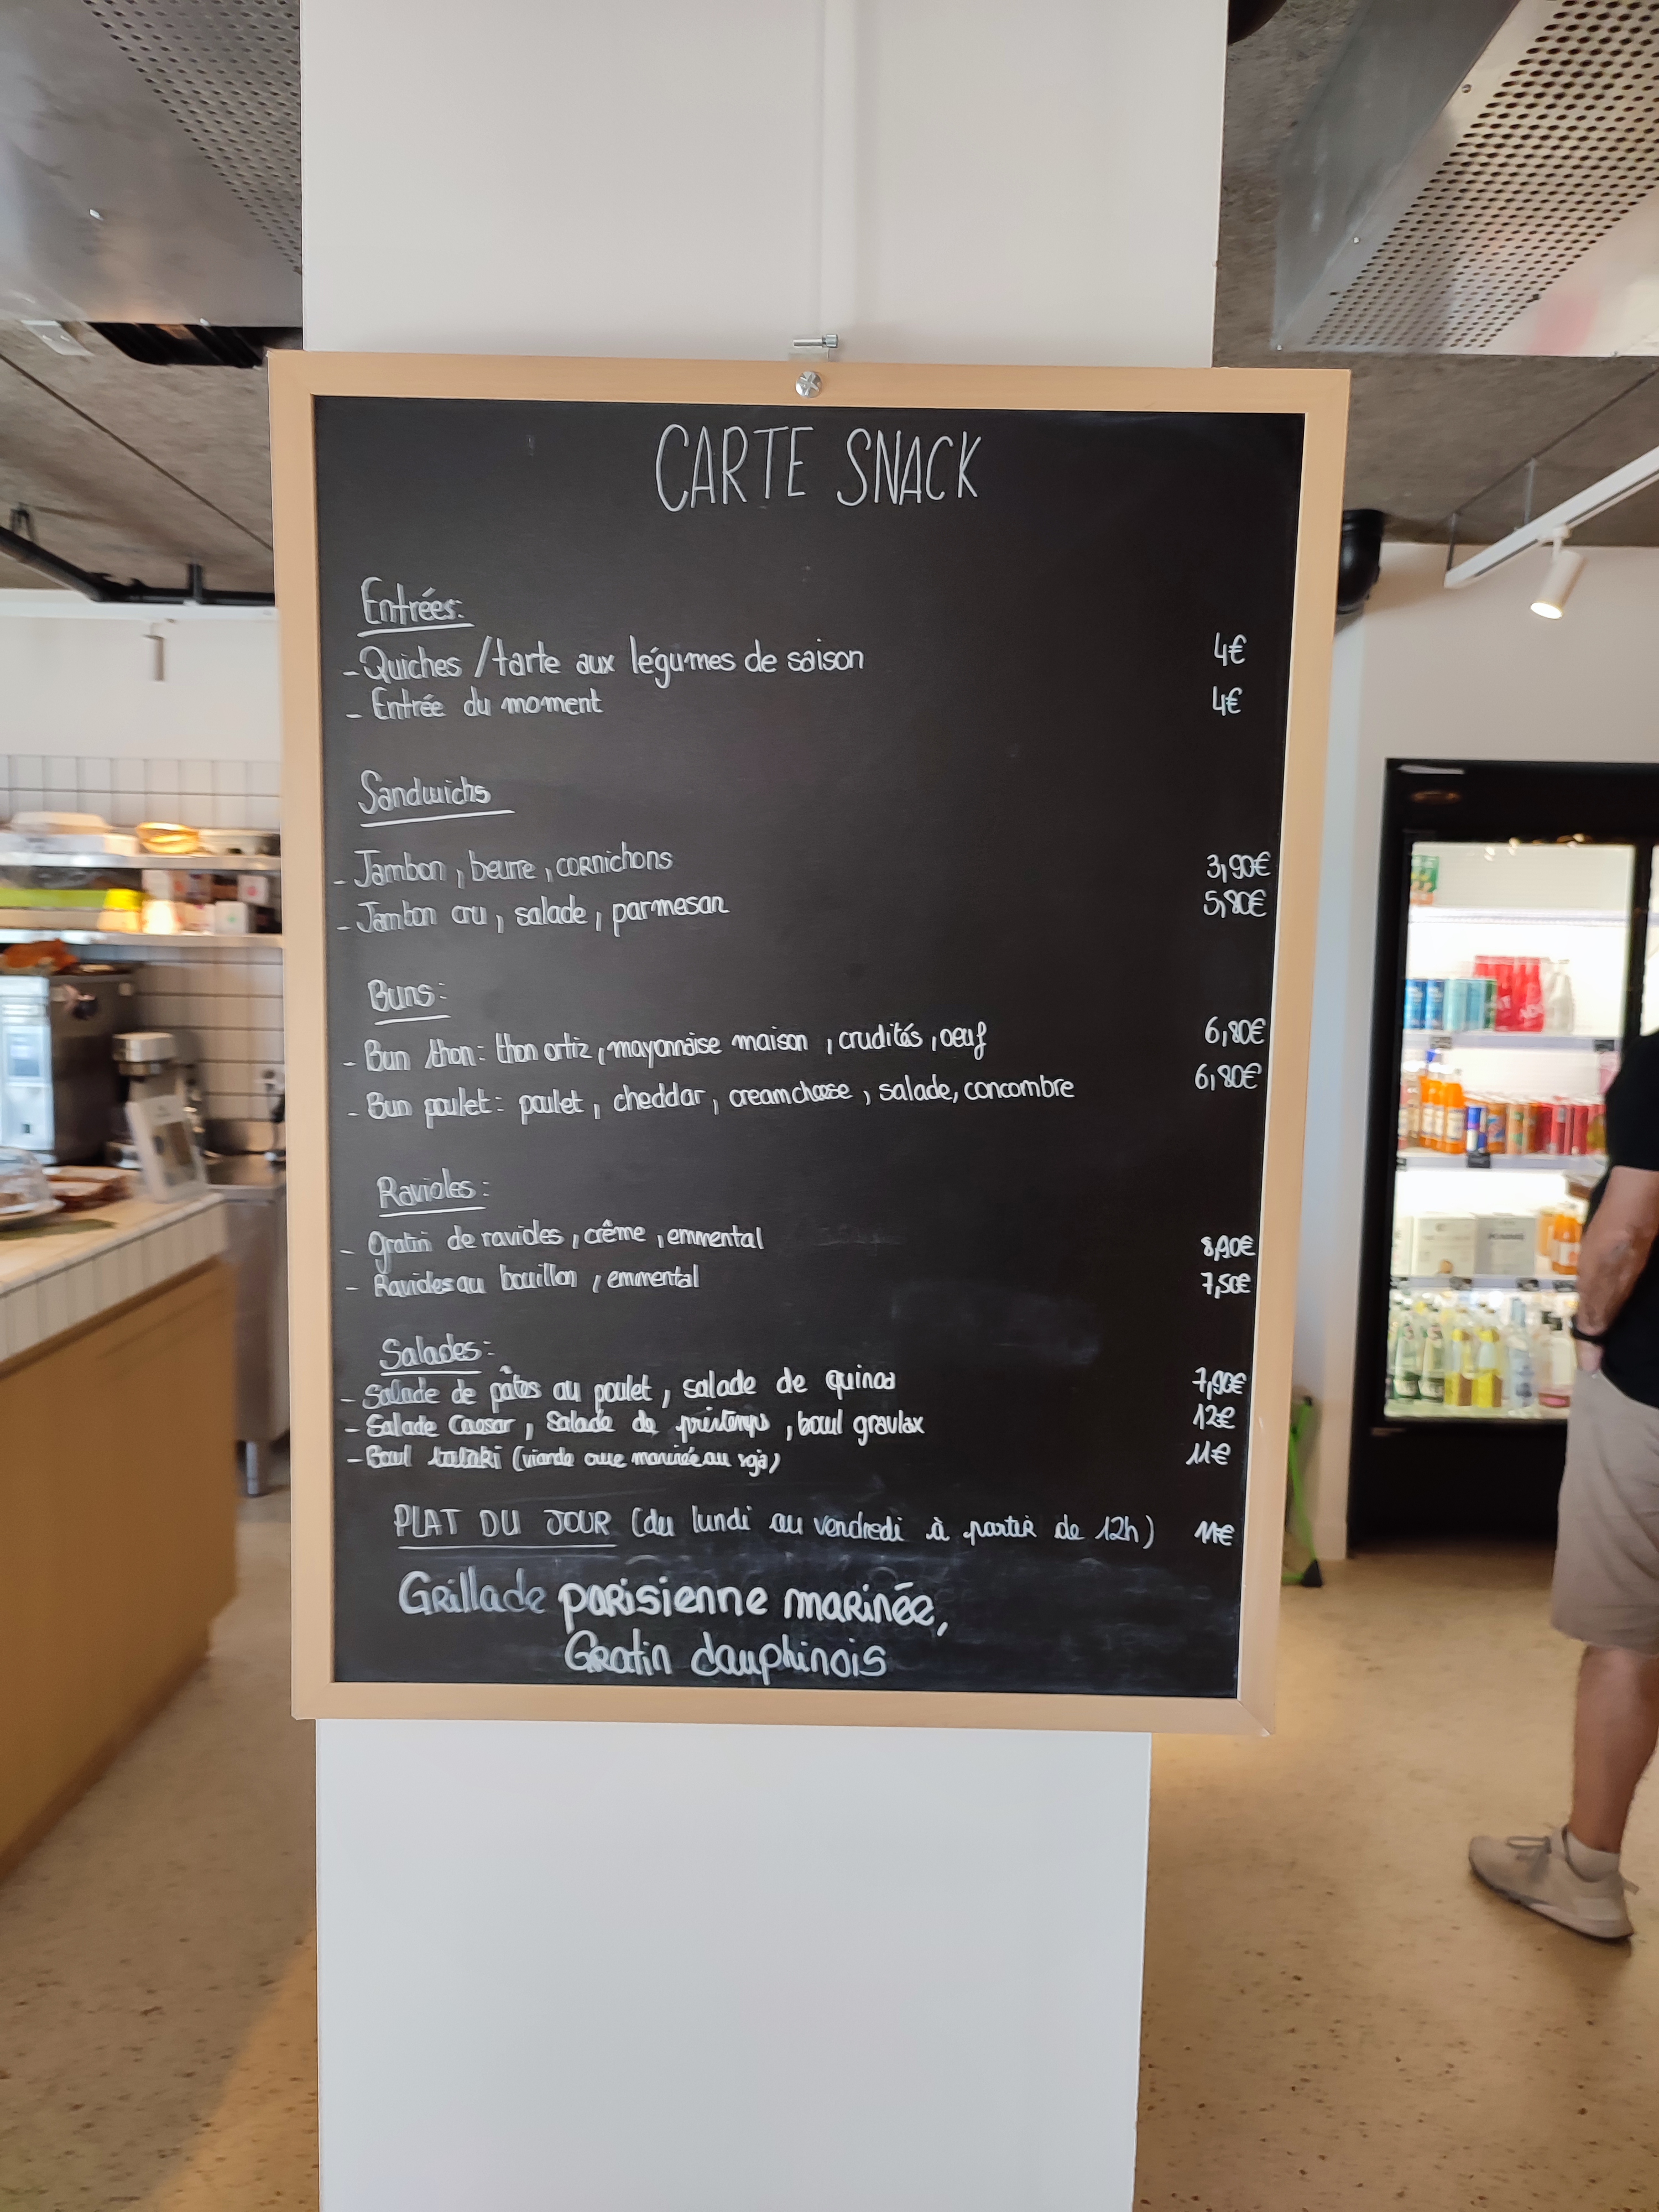 CARTE SNACK
Entrées:
- Quiches / tarte aux légumes de saison 4€
- Entrée du moment 4€
Sandwichs
- Jambon, beurre, cornichons 3,90€
- Jambon cru, salade, parmesan 5,80€
Buns:
- Bun thon: thon ortiz, mayonnaise maison, crudités, oeuf 6,80€
- Bun poulet: poulet, cheddar, creamcheese, salade, concombre 6,80€
Ravioles:
- Gratin de ravioles, crême, emmental
- Ravioles au bouillon, emmental 7,50€
Salades:
- Salade de pâtes au poulet, salade de quinoa 7,90€
- Salade Caesar, Salade de printemps, bowl gravlax 12€
- Bowl (viande crue marinée au soja) 11€
PLAT DU JOUR (du lundi au vendredi à partir de 12h) 11€
Grillade parisienne marinée,
Gratin dauphinois